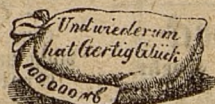 Und wiederum
hat Gertig Glück
100.000 M